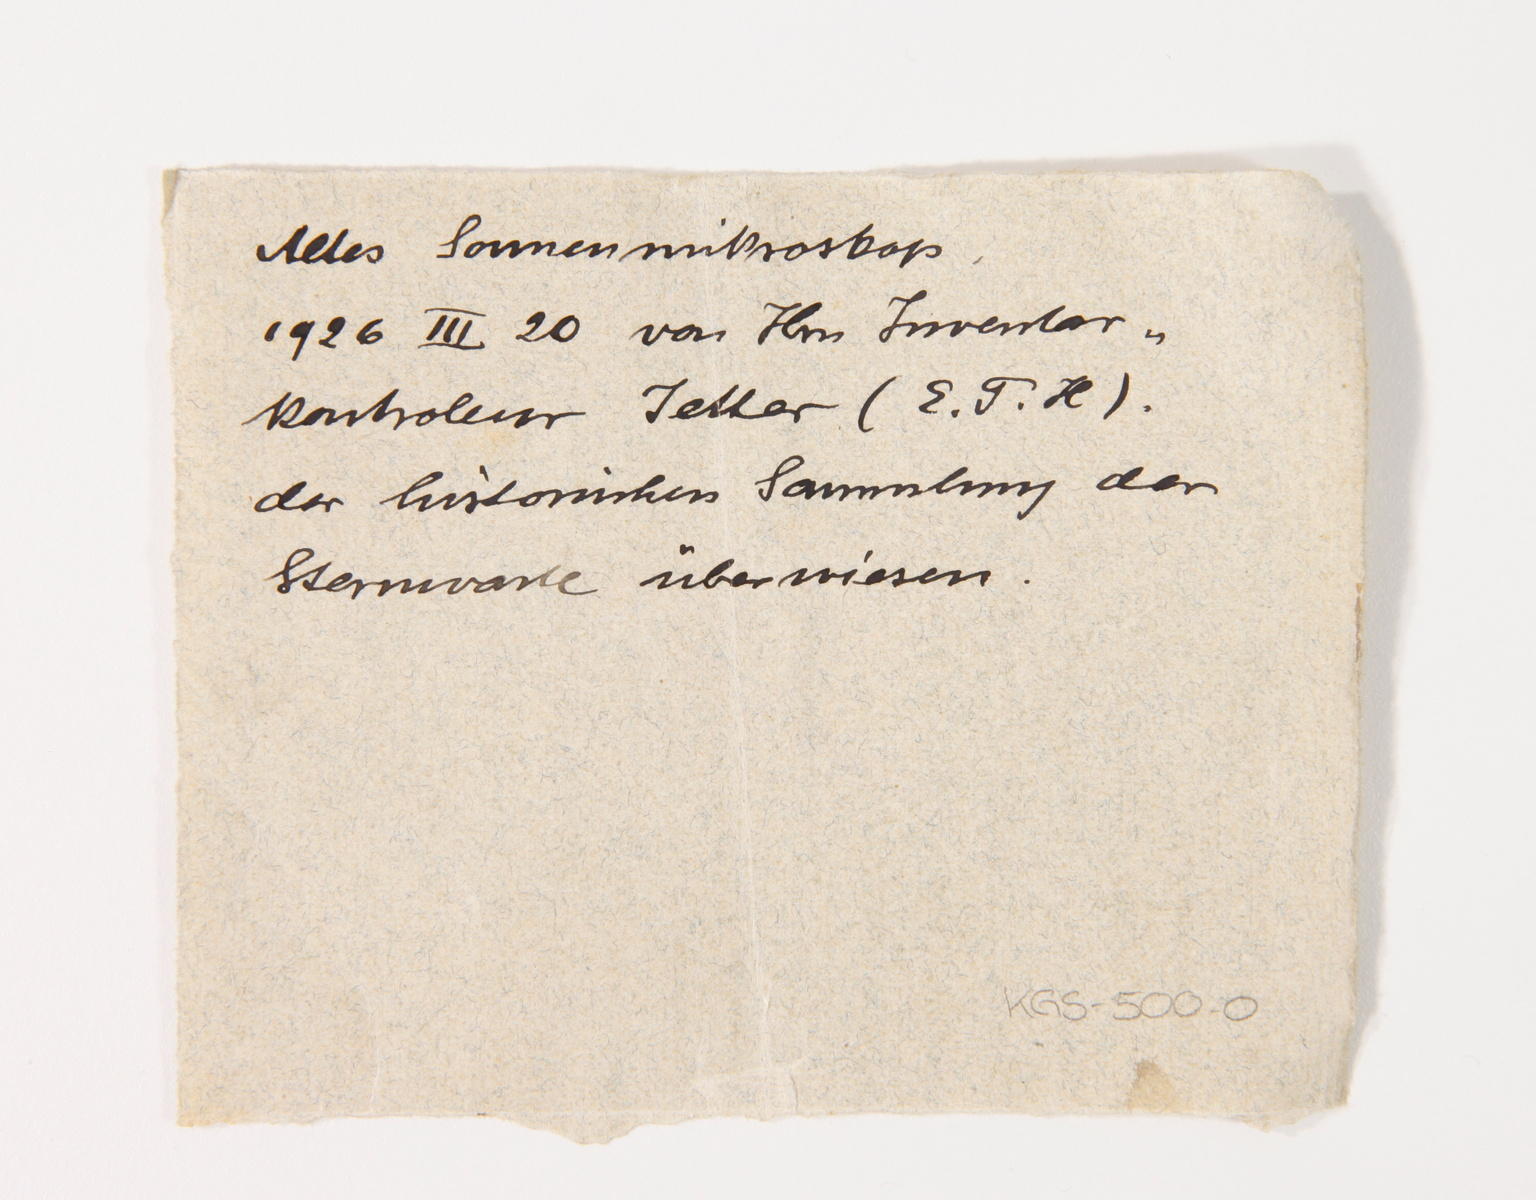 Altes Sonnenmikroskop.
1926 III 20 von Hrn Inventar„
kontroleur Jetter (E.T.H).
der historischen Sammlung der
Sternwarte überwiesen.
KGS-500-0